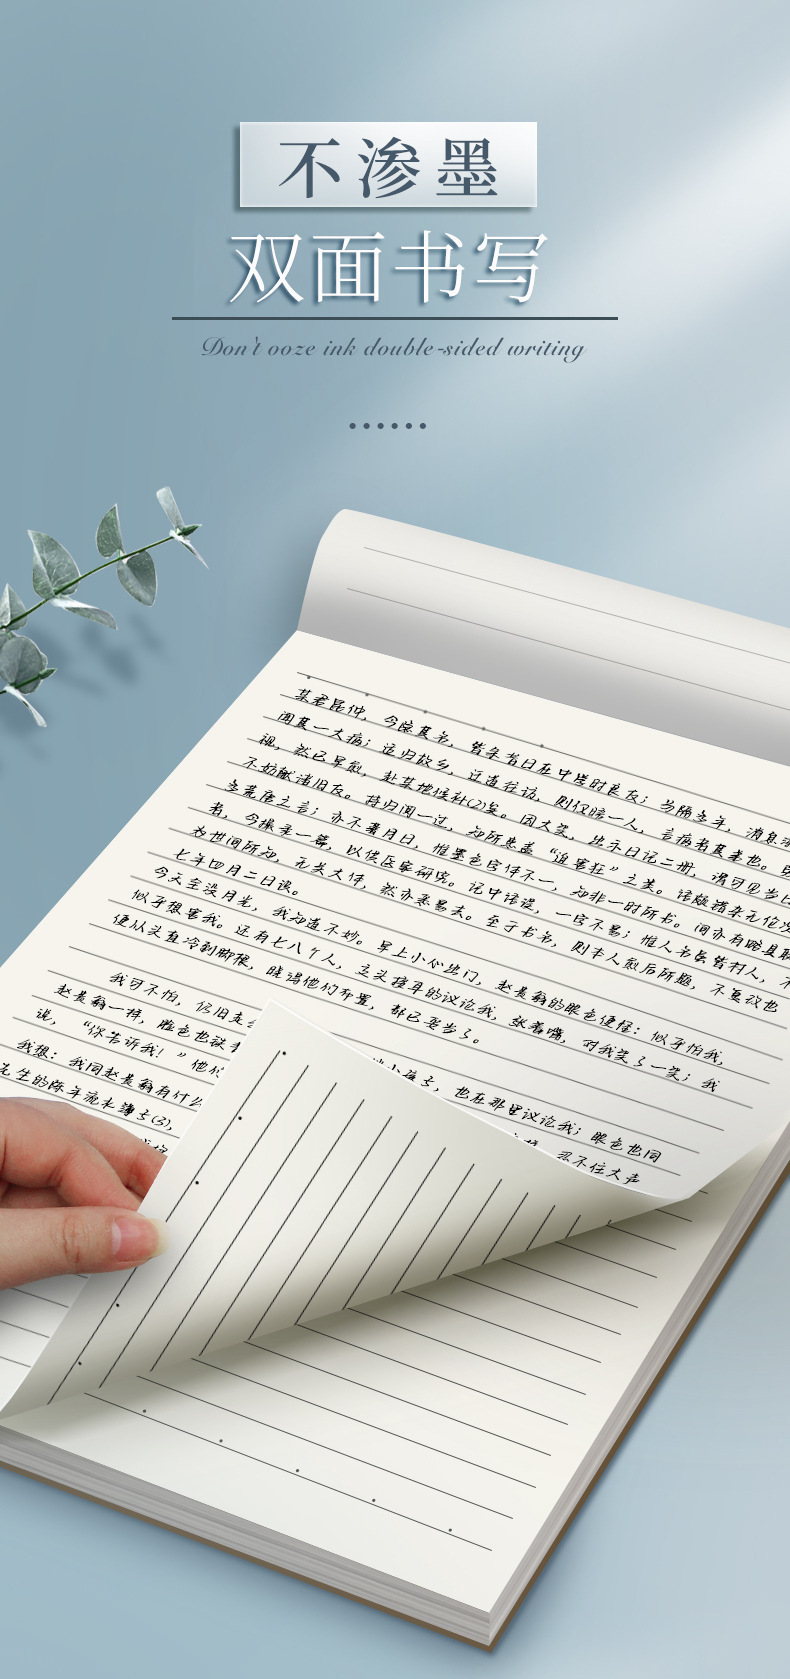 不渗墨
双面书写
Don't ooze ink double-sided writing
某君昆仲，今隐其名，皆余昔日在中学时良友；分隔多年，消息渐
闻其一大病；适归故乡，迂道往访，则仅晤一人，言病者其弟也。
视，然已早愈，赴某地候补(2)矣。因大笑，出示日记二册，谓可见当日
不妨献诸旧友。持归阅一过，知所患盖“迫害狂”之类。语颇错杂无伦次
多荒唐之言；亦不著月日，惟墨色字体不一，知非一时所书。间亦有略具联
者，今撮录一篇，以供医家研究。记中语误，一字不易；惟人名虽皆村人，不
为世间所知，无关大体，然亦悉易去。至于书名，则本人愈后所题，不复改也
七年四月二日识。
今天全没月光，我知道不妙。早上小心出门，赵贵翁的眼色便怪：似乎怕我，
似乎想害我。还有七八个人，交头接耳的议论我，张着嘴，对我笑了一笑；我
便从头直冷到脚根，晓得他们布置，都已妥当了。
我可不怕，仍旧走 小孩子，也在那里议论我；眼色也同
赵贵翁一样，脸色也铁青 忍不住大声
说，“你告诉我！”他们
我想：我同赵贵翁有什么
先生的陈年流水簿子(3)，